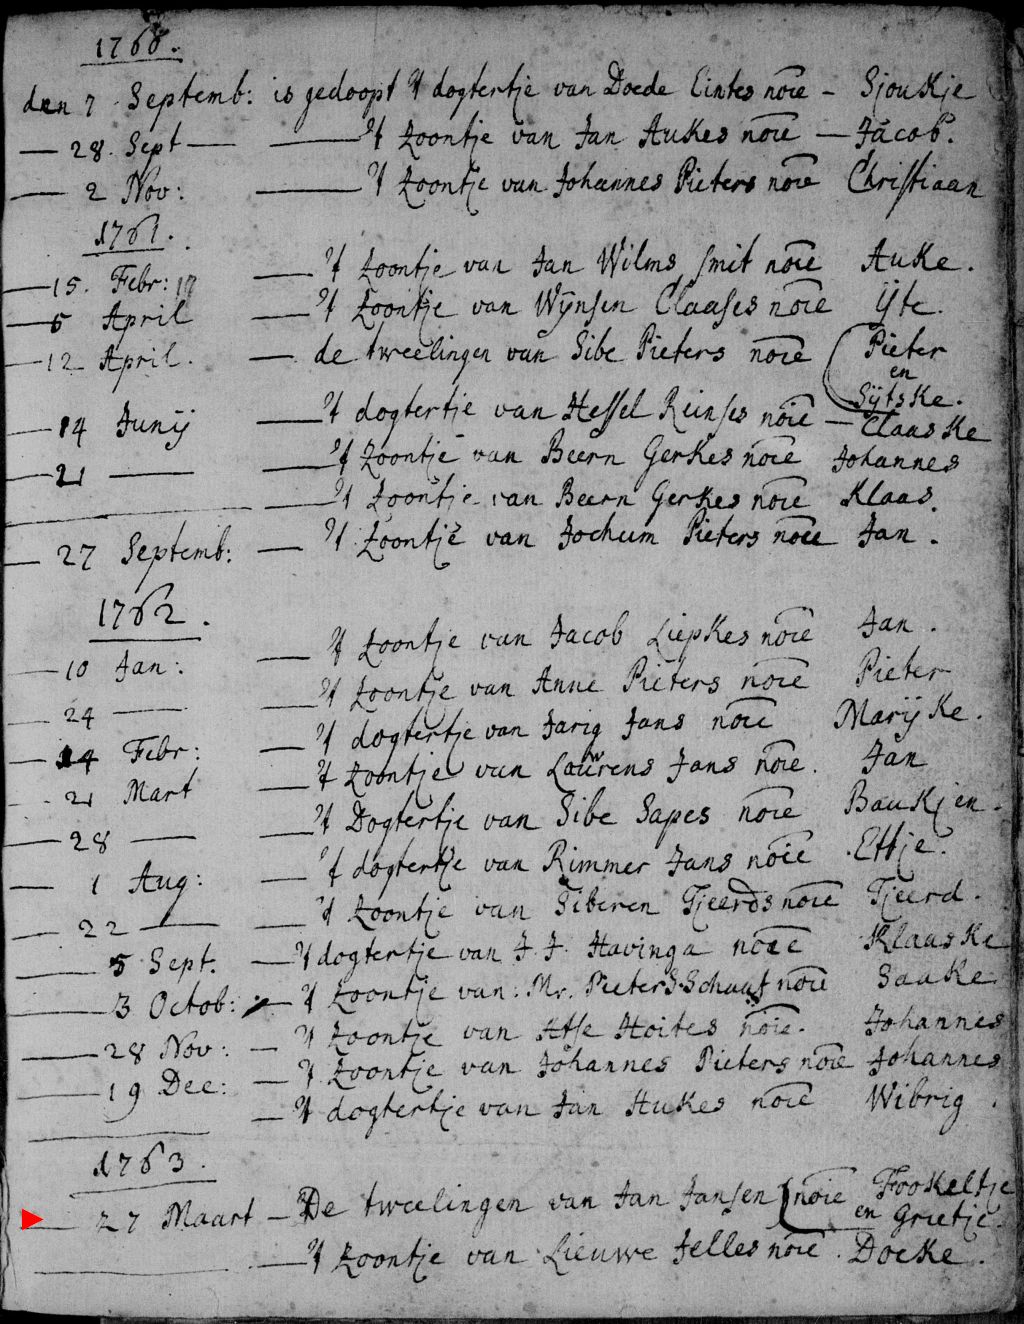 1760.
den 7 Septemb: is gedoopt 't dogtertje van Doede Eintes noīe – Sjoukje
— 28. Sept — — 't zoontje van Jan Aukes noīe — Jacob.
— 2 Nov: — 't zoontje van Johannes Pieters noīe Christiaan
1761.
— 15. Febr: — 't zoontje van Jan Wilms smit noīe Auke.
— 5 April — 't zoontje van Wÿnsen Claases noīe ÿte.
— 12 April. — de tweelingen van Sibe Pieters noīe Pieter
en
Sÿtske.
— 14 Junÿ — 't dogtertje van Hessel Reinses noīe — Claaske
— 21 — — 't zoontje van Beern Gerkes noīe Johannes
— — 't zoontje van Beern Gerkes noīe Klaas.
— 27 Septemb: — 't zoontje van Jochum Pieters noīe Jan.
1762.
— 10 Jan: — 't zoontje van Jacob Liepkes noīe Jan.
— 24 — — 't zoontje van Anne Pieters noīe Pieter
— 14 Febr: — 't dogtertje van Jarig Jans noīe Marÿke.
— 21 Mart — 't zoontje van Lourens Jans noīe. Jan
— 28 — — 't Dogtertje van Sibe Sapes noīe Baukjen.
— 1 Aug: — 't dogtertje van Rimmer Jans noīe Ettje.
— 22 — — 't zoontje van Siberen Tjeerds noīe Tjeerd.
— 5 Sept. — 't dogtertje van J. J. Havinga noīe Klaaske
— 3 Octob: — 't zoontje van Mr. Pieter S. Schaaf noīe Saake
— 28 Nov: — 't zoontje van Atse Hoites noīe. Johannes
— 19 Dec: — 't zoontje van Johannes Pieters noīe Johannes
— — 't dogtertje van Jan Aukes noīe Wibrig.
1763.
— 27 Maart — De tweelingen van Jan Jansen noīe Fookeltje
en Grietje.
— — 't zoontje van Lieuwe Jelles noīe. Doeke.